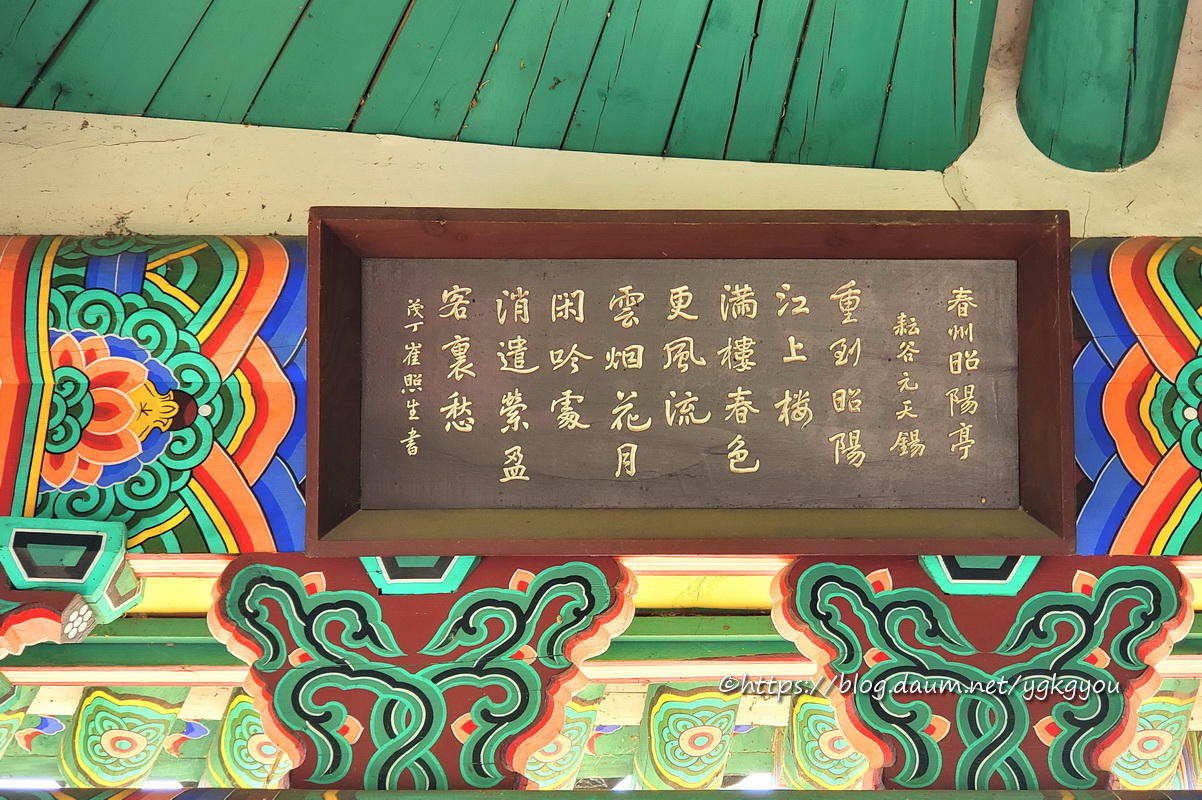 春州昭陽亭
耘谷元天錫
重到昭陽
江上樓
滿樓春色
更風流
雲烟花月
閑吟處
消遣縈盈
客裏愁
茂丁 崔照生 書
©https://blog.daum.net/ygkgyou